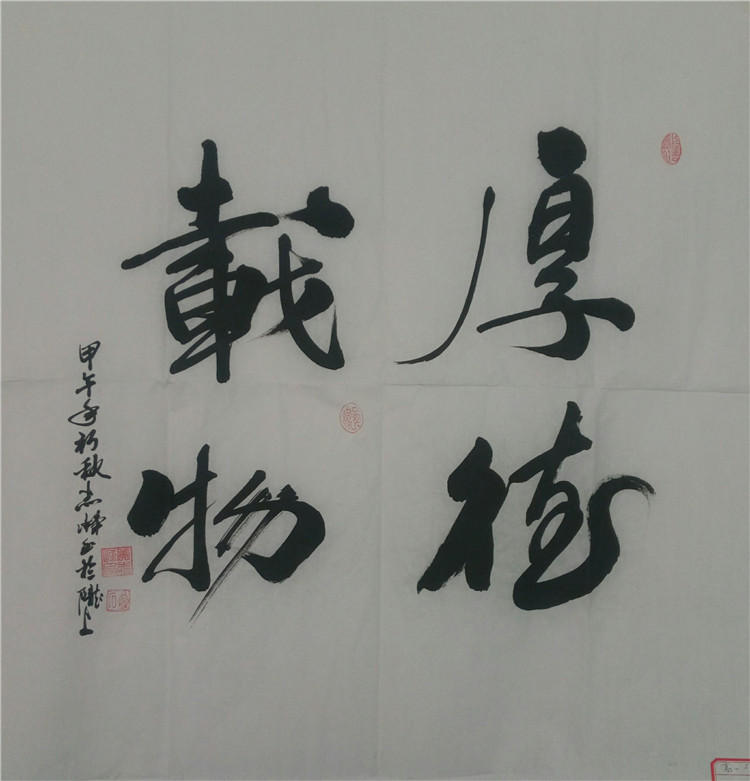 厚德
載物
甲午年初秋志峰书於陇上